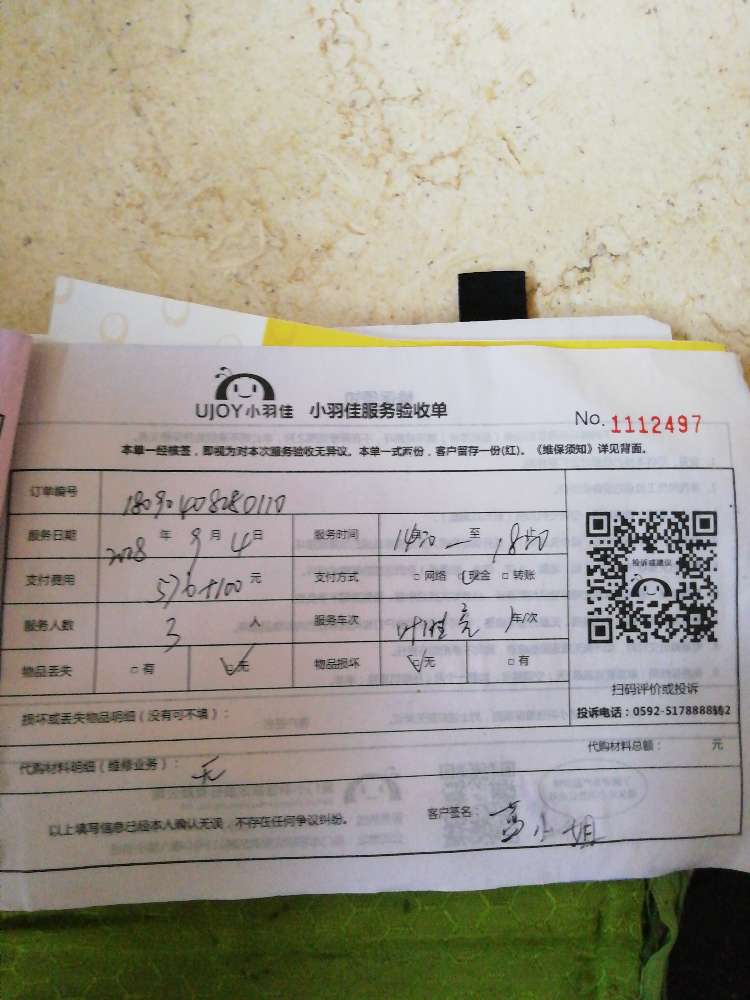 UJOY小羽佳 小羽佳服务验收单
No. 1112497
本单一经核签，即视为对本次服务验收无异议。本单一式两份，客户留存一份(红)。《维保须知》详见背面。
订单编号
服务日期 年 9 月 4 日 服务时间 至
投诉或建议
支付费用 576+100 元 支付方式 □ 网络 □ 现金 □ 转账
服务人数 3 人 服务车次 车/次
物品丢失 □ 有 □ 无 物品损坏 □ 无 □ 有
扫码评价或投诉
投诉电话：0592-5178888转2
损坏或丢失物品明细（没有可不填）：
代购材料明细（维修业务）： 无
代购材料总额： 元
以上填写信息已经本人确认无误，不存在任何争议纠纷。
客户签名： 高小姐